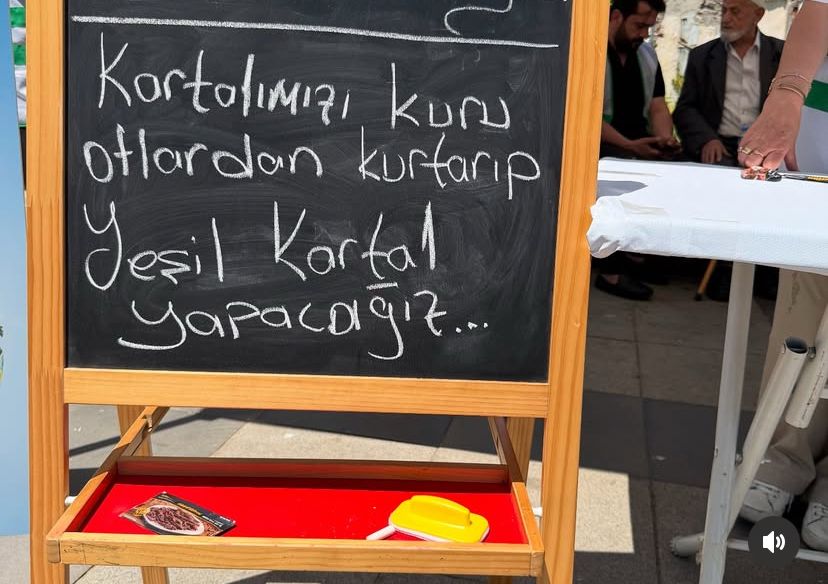 Kartalımızı kuru
otlardan kurtarıp
Yeşil Kartal
yapacağız...